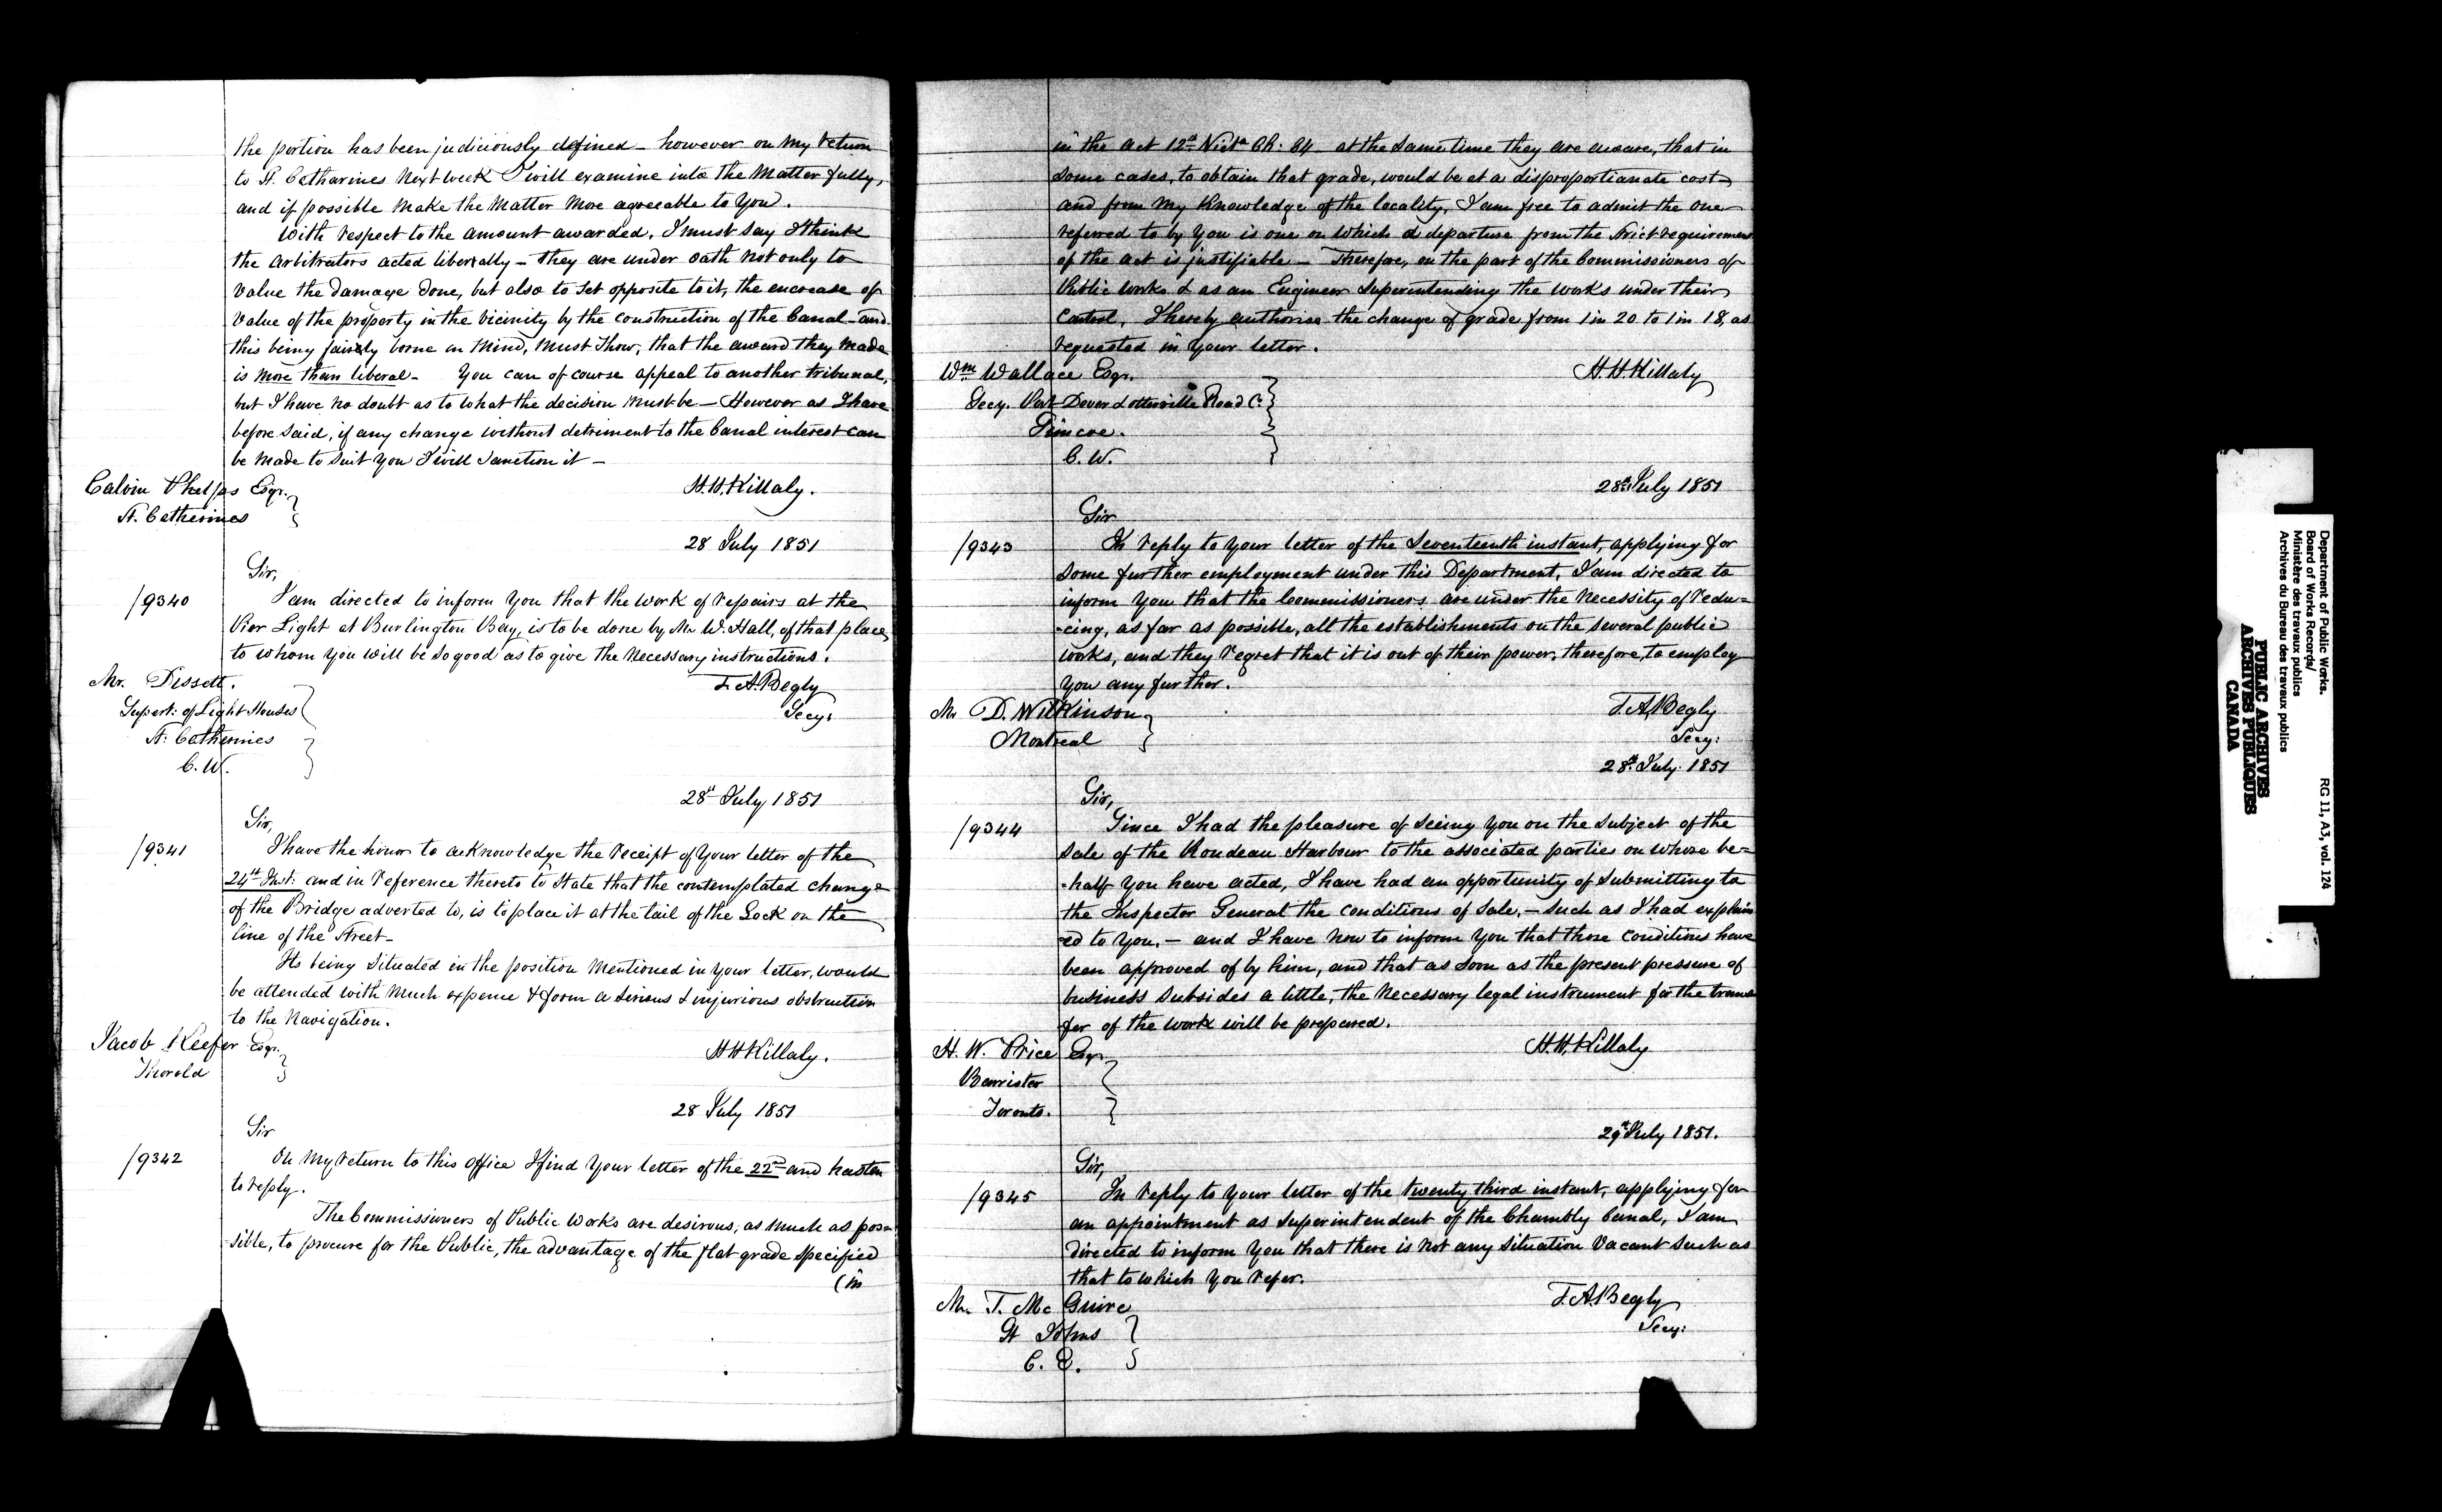 the portion has been judiciously defined – however on my return
to St. Catharines next week I will examine into the matter fully,
and if possible make the matter more agreeable to you.
With respect to the amount awarded, I must say I think
the arbitrators acted liberally – they are under oath not only to
value the damage done, but also to set opposite to it, the encrease of
value of the property in the vicinity by the construction of the Canal – and
this being fairly borne in mind, must show, that the award they made
is more than liberal – You can of course appeal to another tribunal,
but I have no doubt as to what the decision must be – However as I have
before said, if any change without detriment to the Canal interest can
be made to suit you I will sanction it –
Calvin Phelps Esqr.
St. Catherines
H.H. Killaly.
28 July 1851
Sir,
/9340
I am directed to inform you that the work of repairs at the
Pier Light at Burlington Bay, is to be done by Mr W. Hall, of that place,
to whom you will be so good as to give the necessary instructions.
Mr. Dissett.
Supert: of Light Houses
St: Catherines
C.W.
F.A. Begly
Secy:
28th July 1851
Sir,
/9341
I have the honor to acknowledge the receipt of your letter of the
24th Inst: and in reference thereto to state that the contemplated change
of the Bridge adverted to, is to place it at the tail of the Lock on the
line of the Street –
Its being situated in the position mentioned in your letter, would
be attended with much expence & form a serious & injurious obstruction
to the Navigation.
Jacob Keefer Esqr.
Thorold
HHKillaly.
28 July 1851
Sir
/9342
On my return to this office I find your letter of the 22nd and hasten
to reply.
The Commissioners of Public Works are desirous, as much as pos=
=sible, to procure for the Public, the advantage of the flat grade specified
(in
in the act 12th Victa Ch: 84 at the same time they are aware, that in
some cases, to obtain that grade, would be at a disproportianate cost –
and from my knowledge of the locality, I am free to admit the one
referred to by you is one on which a departure from the strict requirement
of the act is justifiable – Therefore, on the part of the Commissioners of
Public Works & as an Engineer Superintending the works under their
Control, I hereby authorise the change of grade from 1 in 20 to 1 in 18, as
requested in your letter.
Wm Wallace Esqr.
Secy. Port Dover & Otterville Road Co
Simcoe.
C.W.
H.H. Killaly
28th July 1851
Sir
/9343
In reply to your letter of the Seventeenth instant, applying for
some further employment under this Department, I am directed to
inform you that the Commissioners are under the necessity of redu=
=cing, as far as possible, all the establishments on the several public
works, and they regret that it is out of their power, therefore, to employ
you any further.
Mr D. Wilkinson
Montreal
F.A. Begly
Secy:
28th July 1851
Sir,
/9344
Since I had the pleasure of seeing you on the subject of the
sale of the Rondeau Harbour to the associated parties on whose be=
=half you have acted, I have had an opportunity of submitting to
the Inspector General the conditions of sale, – such as I had explain
=ed to you, – and I have now to inform you that those conditions have
been approved of by him, and that as soon as the present pressure of
business subsides a little, the necessary legal instrument for the trans
fer of the work will be prepared.
H. W. Price Esqr.
Barrister
Toronto.
H.H. Killaly
29th July 1851.
Sir,
/9345
In reply to your letter of the twenty third instant, applying for
an appointment as Superintendent of the Chambly Canal, I am
directed to inform you that there is not any situation vacant such as
that to which you refer.
Mr. T. Mc Guire
St Johns
C. E.
F.A. Begly
Secy:
Department of Public Works.
Board of Works Records/
Ministère des travaux publics
Archives du Bureau des travaux publics
RG 11, A3, vol. 124
PUBLIC ARCHIVES
ARCHIVES PUBLIQUES
CANADA